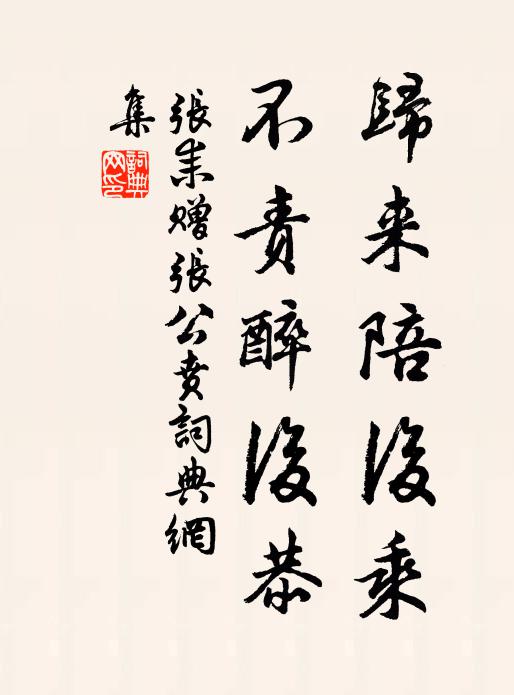 歸来陪後乘
不責醉後恭
張耒贈張公賁詞典網
集
詞典
网印